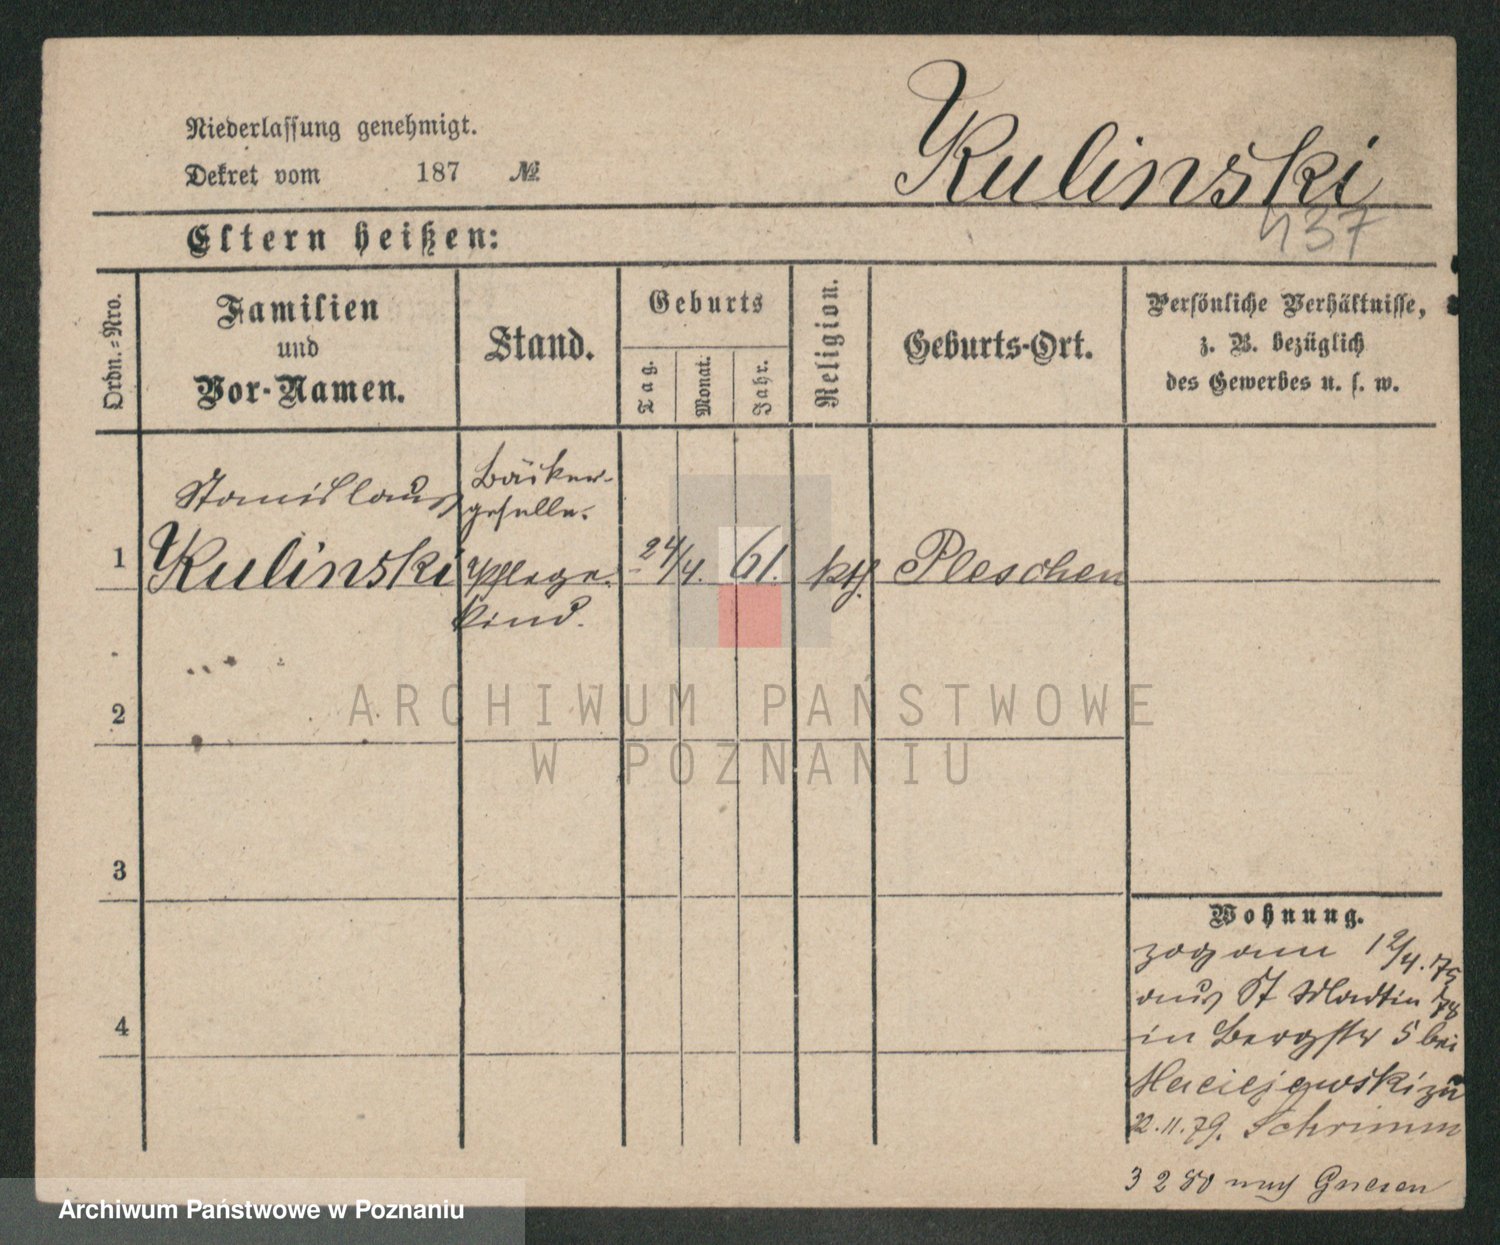 Niederlassung genehmigt.
Dekret vom 187 №
Kulinski
437
Eltern heißen:
Ordn.=Nro.
Familien
und
Vor-Namen.
Stand.
Geburts
Tag.
Monat.
Jahr.
Religion.
Geburts-Ort.
Persönliche Verhältnisse,
z. B. bezüglich
des Gewerbes u. s. w.
Stanislaus
Bäcker-
geselle.
1 Kulinski Pflege- 24/4. 61. kth. Pleschen
kind.
2
3
4
ARCHIWUM PAŃSTWOWE
W POZNANIU
Wohnung.
12/4. 79
aus St Martin 78
in Bergstr 5 bei
Maciejewski zu
22.11.79. Schrimm
3 2 80 nach Gnesen
Archiwum Państwowe w Poznaniu